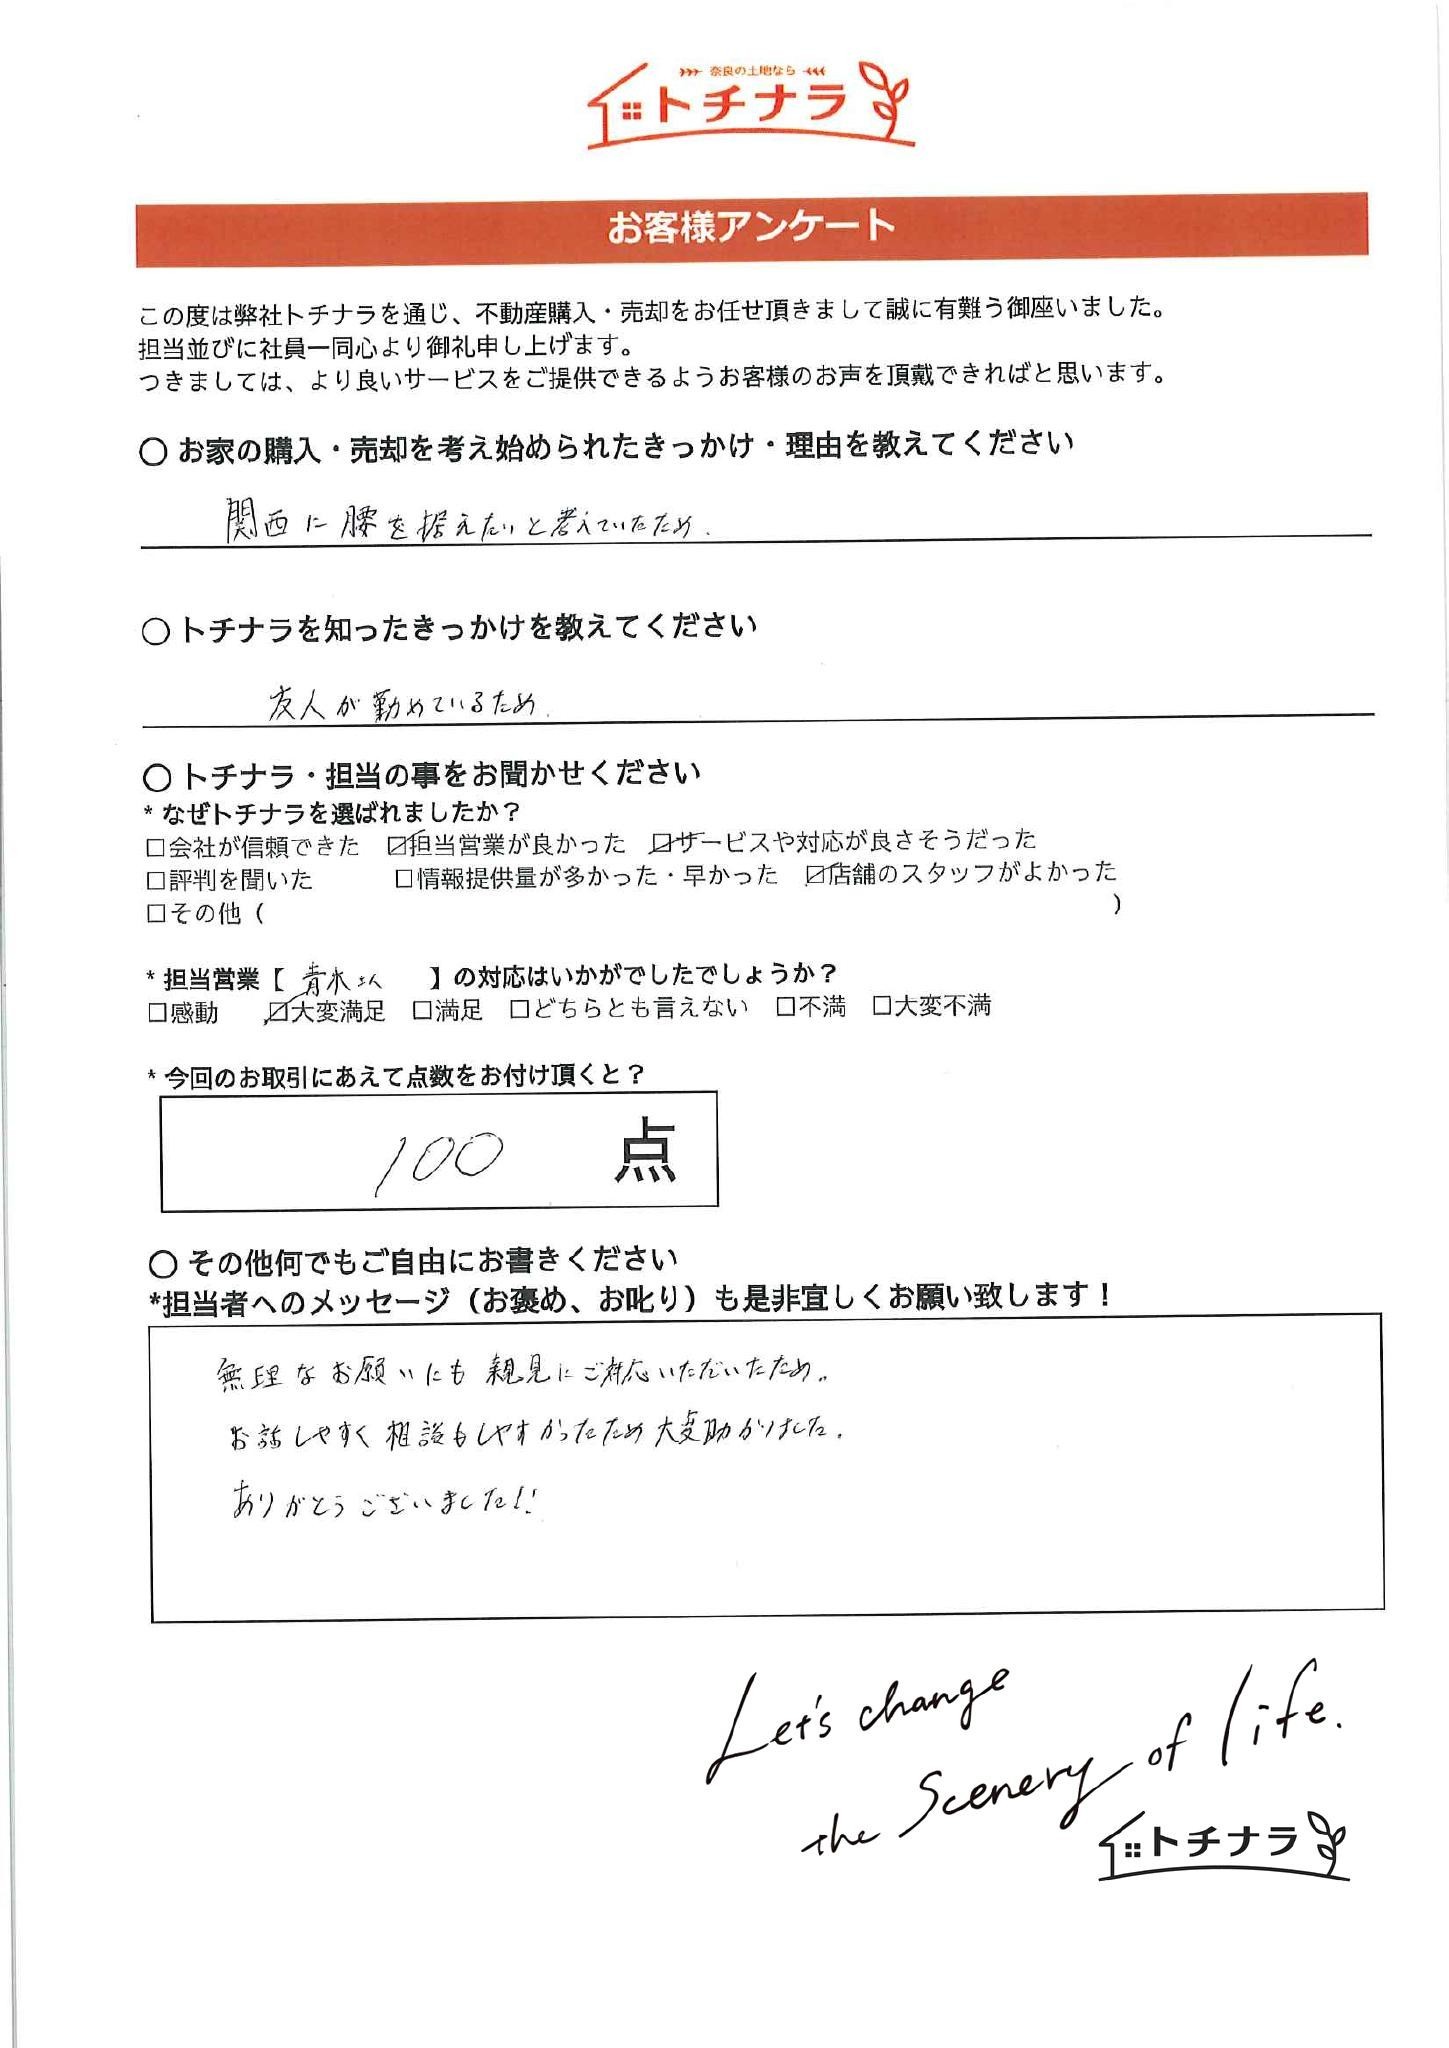 奈良の土地なら
トチナラ
お客様アンケート
この度は弊社トチナラを通じ、不動産購入・売却をお任せ頂きまして誠に有難う御座いました。
担当並びに社員一同心より御礼申し上げます。
つきましては、より良いサービスをご提供できるようお客様のお声を頂戴できればと思います。
○ お家の購入・売却を考え始められたきっかけ・理由を教えてください
関西に腰を据えたいと考えていたため.
○ トチナラを知ったきっかけを教えてください
友人が勤めているため.
○ トチナラ・担当の事をお聞かせください
* なぜトチナラを選ばれましたか？
□会社が信頼できた ☑担当営業が良かった ☑サービスや対応が良さそうだった
□評判を聞いた □情報提供量が多かった・早かった ☑店舗のスタッフがよかった
□その他（ ）
* 担当営業【 青木さん 】の対応はいかがでしたでしょうか？
□感動 ☑大変満足 □満足 □どちらとも言えない □不満 □大変不満
* 今回のお取引にあえて点数をお付け頂くと？
100 点
○ その他何でもご自由にお書きください
*担当者へのメッセージ（お褒め、お叱り）も是非宜しくお願い致します！
無理なお願いにも親見にご対応いただいたため..
お話しやすく相談もしやすかったため大変助かりました.
ありがとうございました!!
Let's change
the Scenery of life.
トチナラ